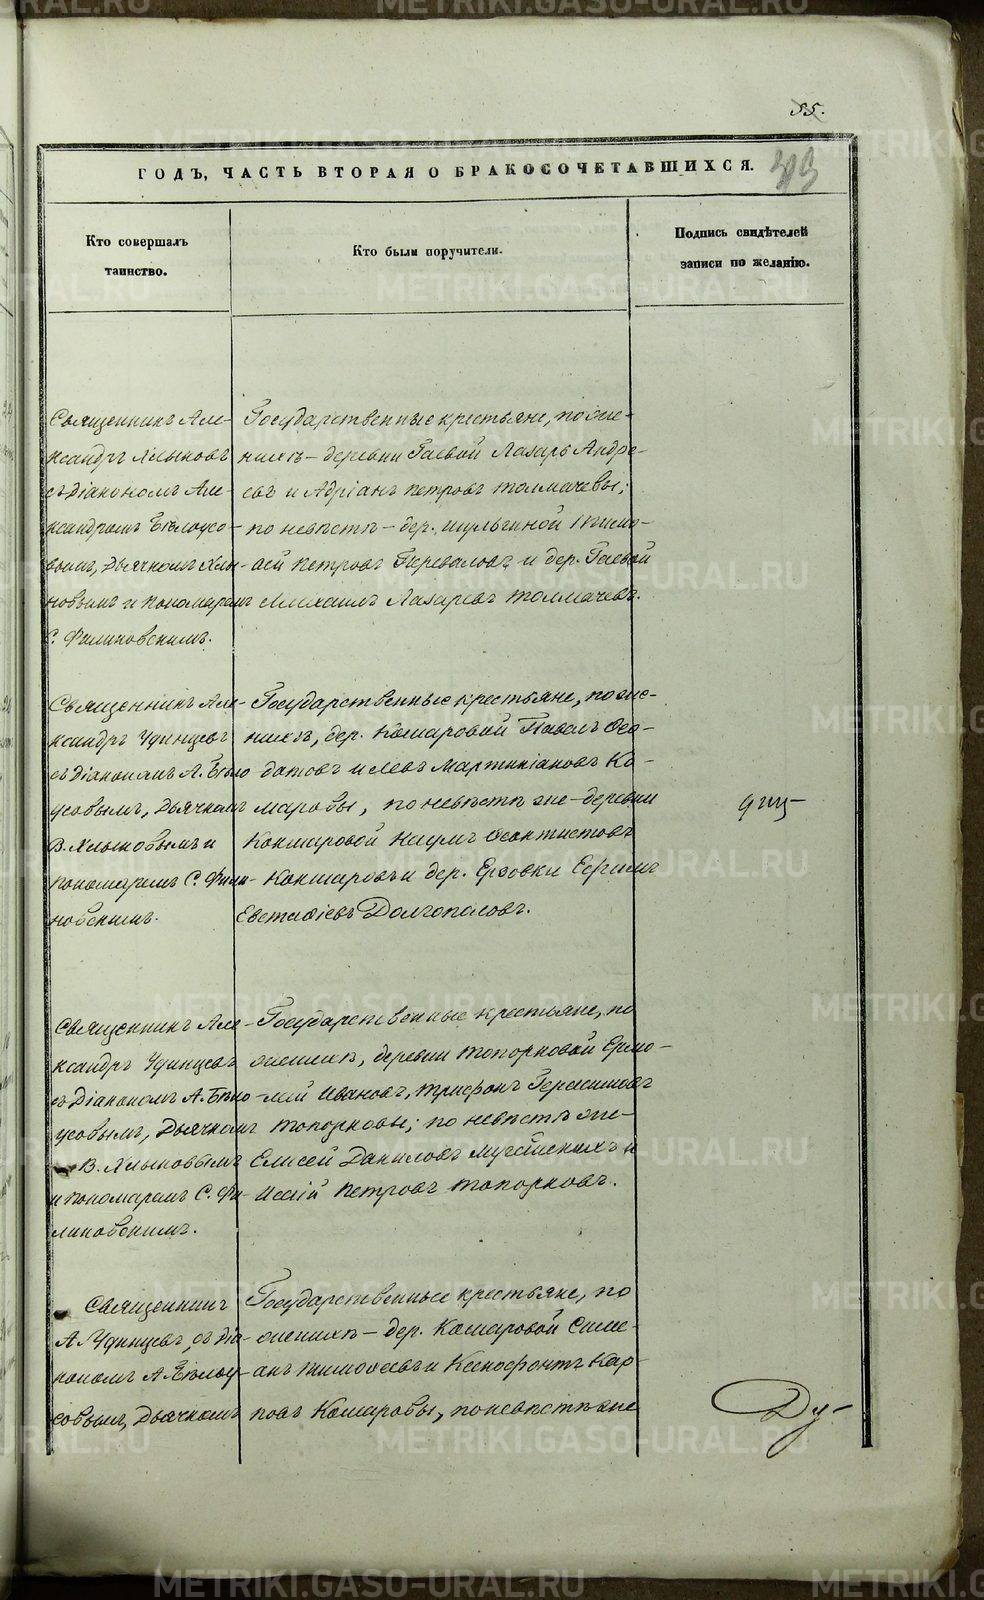 55.
ГОДЪ, ЧАСТЬ ВТОРАЯ О БРАКОСОЧЕТАВШИХСЯ.
Кто совершалъ
таинство.
Кто были поручители.
Подпись свидѣтелей
записи по желанію.
Священникъ Але-
ксандръ Хлыновъ
съ Діакономъ Але-
ксандромъ Бѣлоусо-
вымъ, Дьячкомъ Хлы-
новымъ и Пономаремъ
С. Филиновскимъ.
Государственные крестьяне, по же-
нихѣ – деревни Гаевой Лазарь Андре-
евъ и Адріанъ Петровъ Толмачевы;
по невѣстѣ – дер. Шульгиной Тимо-
ѳей Петровъ Перевалову и дер. Гаевой
Михаилъ Лазаревъ Толмачевъ.
Священникъ Але-
ксандръ Удинцевъ
съ Діакономъ А. Бѣло
усовымъ, Дьячкомъ
В. Хлыновымъ и
Пономаремъ С. Фили-
новскимъ.
Государственные крестьяне, по же-
нихѣ, дер. Комаровой Павелъ Ѳео-
датовъ и Левъ Мартиніановъ Ко-
маровы, по невѣстѣ же – деревни
Комаровой Наумъ
Комаровъ и дер. Ерзовки Ефимъ
Евстафіевъ Долгополовъ.
Священникъ Але-
ксандръ Удинцевъ
съ Діакономъ А. Бѣло
усовымъ, Дьячкомъ
В. Хлыновымъ
и Пономаремъ С. Фи-
линовскимъ.
Государственные крестьяне, по
женихѣ, деревни Топорковой Ермо-
лай Ивановъ, Трифонъ Герасимовъ
Топорковы; по невѣстѣ же –
Елисей Даниловъ и
Петровъ Топорковъ.
Священникъ
А. Удинцевъ, съ Діа-
кономъ А Бѣлоу-
совымъ, Дьячкомъ
Государственные крестьяне, по
женихѣ – дер. Комаровой Симе-
онъ Тимоѳеевъ и Ксенофонтъ Кар-
повъ Комаровы, по невѣстѣ же
Ду-
METRIKI.GASO-URAL.RU